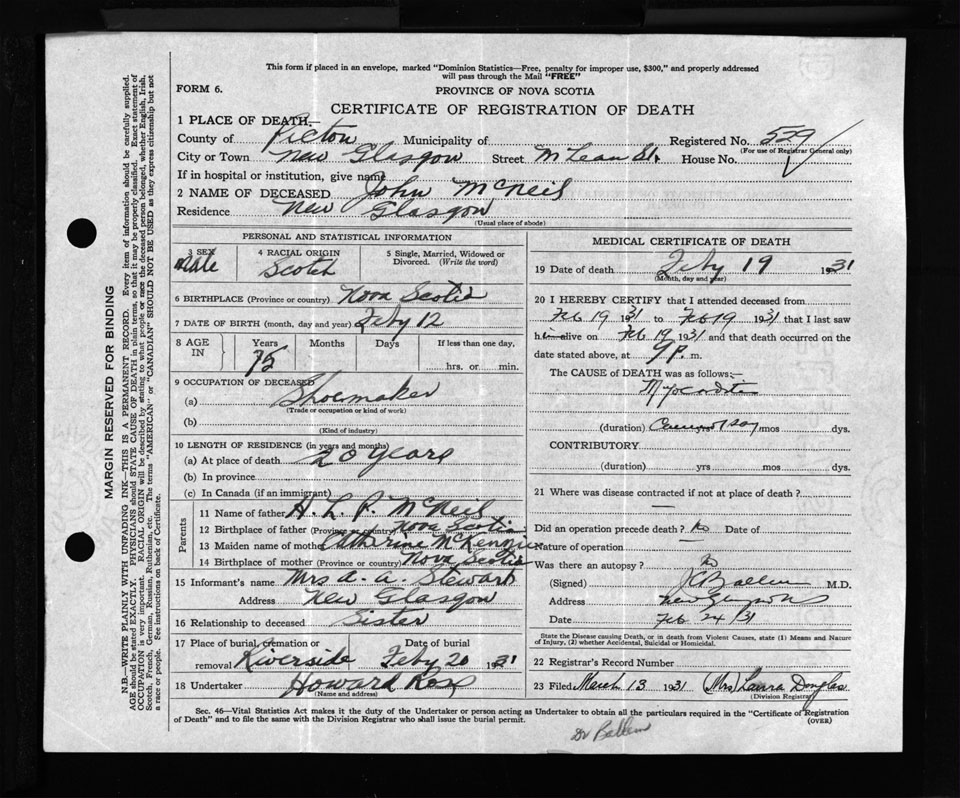 This form if placed in an envelope, marked "Dominion Statistics—Free, penalty for improper use, $300," and properly addressed
will pass through the Mail "FREE"
FORM 6.
PROVINCE OF NOVA SCOTIA
CERTIFICATE OF REGISTRATION OF DEATH
1 PLACE OF DEATH—
County of Pictou Municipality of Registered No. 529
(For use of Registrar General only)
City or Town New Glasgow Street McLean St. House No.
If in hospital or institution, give name
2 NAME OF DECEASED John McNeil
Residence New Glasgow
(Usual place of abode)
PERSONAL AND STATISTICAL INFORMATION
3 SEX 4 RACIAL ORIGIN 5 Single, Married, Widowed or
Divorced. (Write the word)
Male Scotch
6 BIRTHPLACE (Province or country) Nova Scotia
7 DATE OF BIRTH (month, day and year) Feby 12
8 AGE IN Years Months Days If less than one day,
75 hrs. or min.
9 OCCUPATION OF DECEASED
(a) Shoemaker
(Trade or occupation or kind of work)
(b)
(Kind of industry)
10 LENGTH OF RESIDENCE (in years and months)
(a) At place of death 20 years
(b) In province
(c) In Canada (if an immigrant)
Parents
11 Name of father H. L. P. McNeil
12 Birthplace of father (Province or country) Nova Scotia
13 Maiden name of mother Catherine McKennie
14 Birthplace of mother (Province or country) Nova Scotia
15 Informant's name Mrs A. A. Stewart
Address New Glasgow
16 Relationship to deceased Sister
17 Place of burial, cremation or Date of burial
removal Riverside Feby 20 1931
18 Undertaker Howard Ross
(Name and address)
MEDICAL CERTIFICATE OF DEATH
19 Date of death Feby 19 1931
(Month, day and year)
20 I HEREBY CERTIFY that I attended deceased from
Feb 19 1931 to Feb 19 1931 that I last saw
him alive on Feb 19 1931 and that death occurred on the
date stated above, at 9 P. m.
The CAUSE of DEATH was as follows:—
Myocarditis
(duration) Cannot say mos dys.
CONTRIBUTORY
(duration) yrs mos dys.
21 Where was disease contracted if not at place of death?
Did an operation precede death? No Date of
Nature of operation
Was there an autopsy? No
(Signed) Ballem M.D.
Address New Glasgow NS
Date Feb 24/31
State the Disease causing Death, or in death from Violent Causes, state (1) Means and Nature
of Injury, (2) whether Accidental, Suicidal or Homicidal.
22 Registrar's Record Number
23 Filed March 13 1931 (Mrs) Laura Douglas
(Division Registrar)
Sec. 46—Vital Statistics Act makes it the duty of the Undertaker or person acting as Undertaker to obtain all the particulars required in the "Certificate of Registration
of Death" and to file the same with the Division Registrar who shall issue the burial permit. (OVER)
Dr Ballem
MARGIN RESERVED FOR BINDING
N.B.—WRITE PLAINLY WITH UNFADING INK—THIS IS A PERMANENT RECORD. Every item of information should be carefully supplied.
AGE should be stated EXACTLY. PHYSICIANS should STATE CAUSE OF DEATH in plain terms, so that it may be properly classified. Exact statement of
OCCUPATION is very important. RACIAL ORIGIN will be described by stating to what people or race the deceased person belonged, whether English, Irish,
Scotch, French, German, Russian, Ruthenian, etc. The terms "AMERICAN" or "CANADIAN" SHOULD NOT BE USED as they express citizenship but not
a race or people. See instructions on back of Certificate.